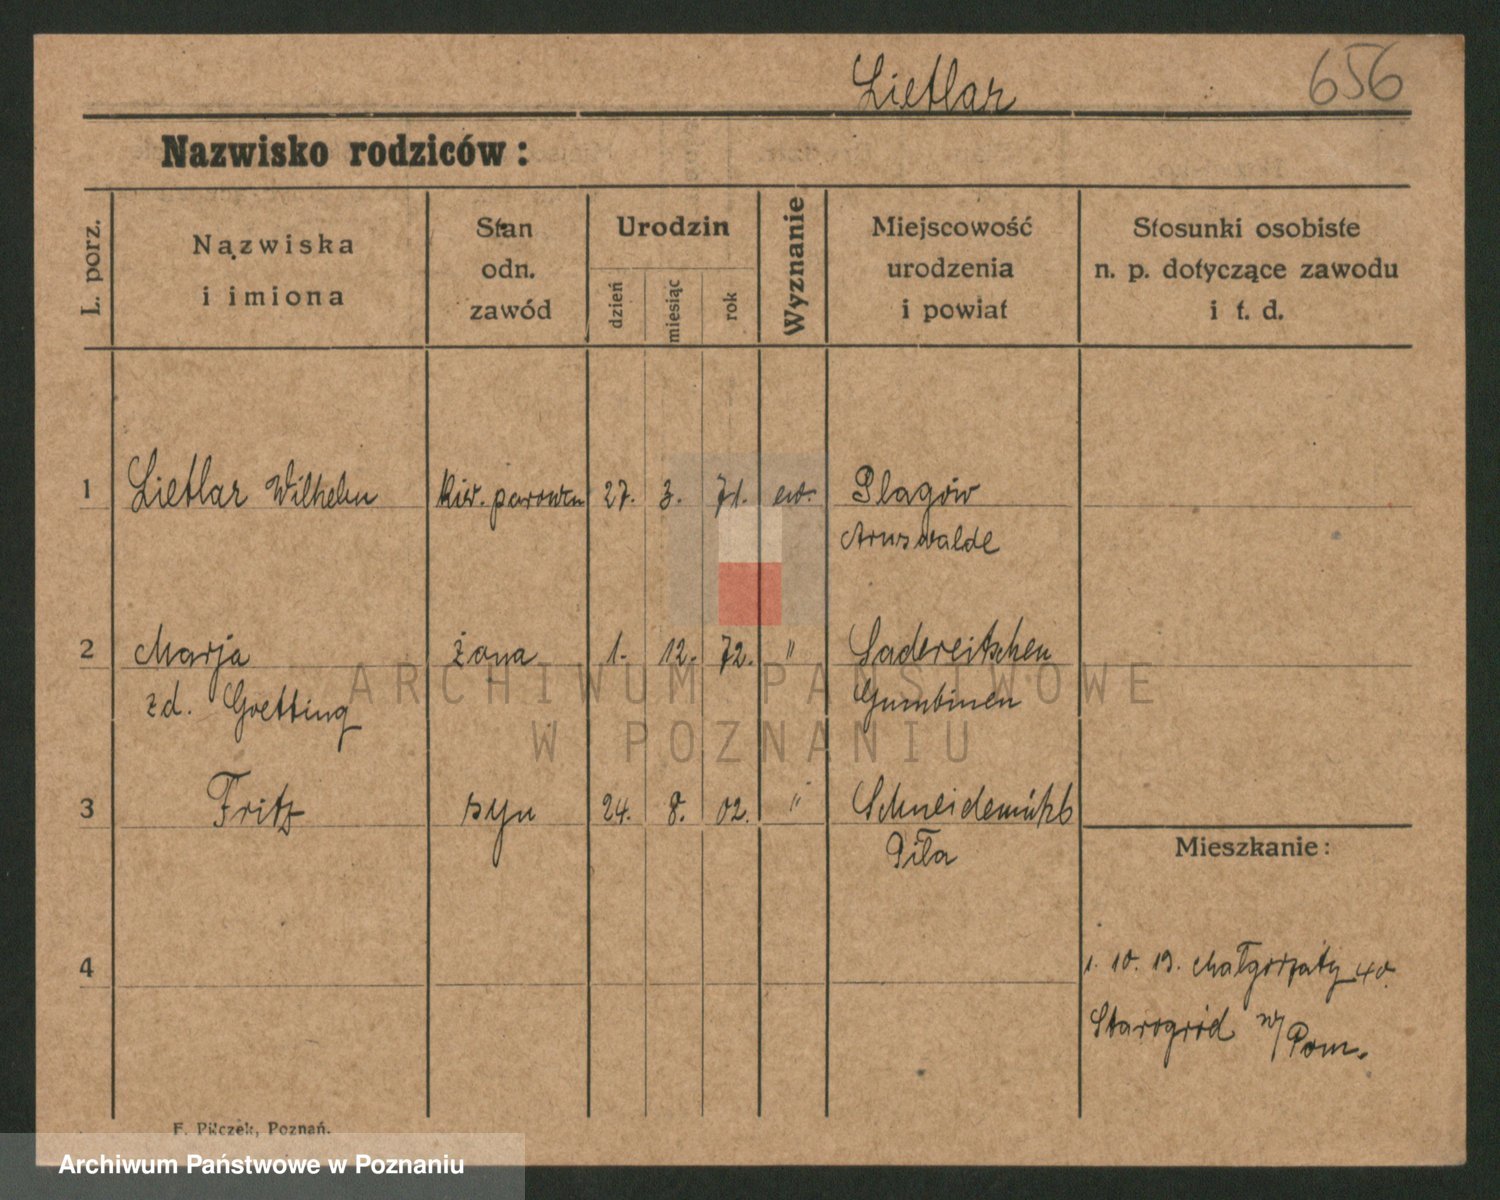 Lietlar 656
Nazwisko rodziców:
L. porz.
Nazwiska
i imiona
Stan
odn.
zawód
Urodzin
dzień
miesiąc
rok
Wyznanie
Miejscowość
urodzenia
i powiat
Stosunki osobiste
n. p. dotyczące zawodu
i t. d.
1 Lietlar Wilhelm kier. parowzu 27. 3. 71. ew. Plagów
Arnswalde
2 Marja żona 1. 12. 72. " Sadereitschen
zd. Goetting Gumbinen
3 Fritz syn 24. 8. 02. " Schneidemühl
Piła
Mieszkanie:
4
1. 10. 19. Małgorzaty 40.
Starogród n/Pom.
F. Pilczek, Poznań.
ARCHIWUM PAŃSTWOWE
W POZNANIU
Archiwum Państwowe w Poznaniu